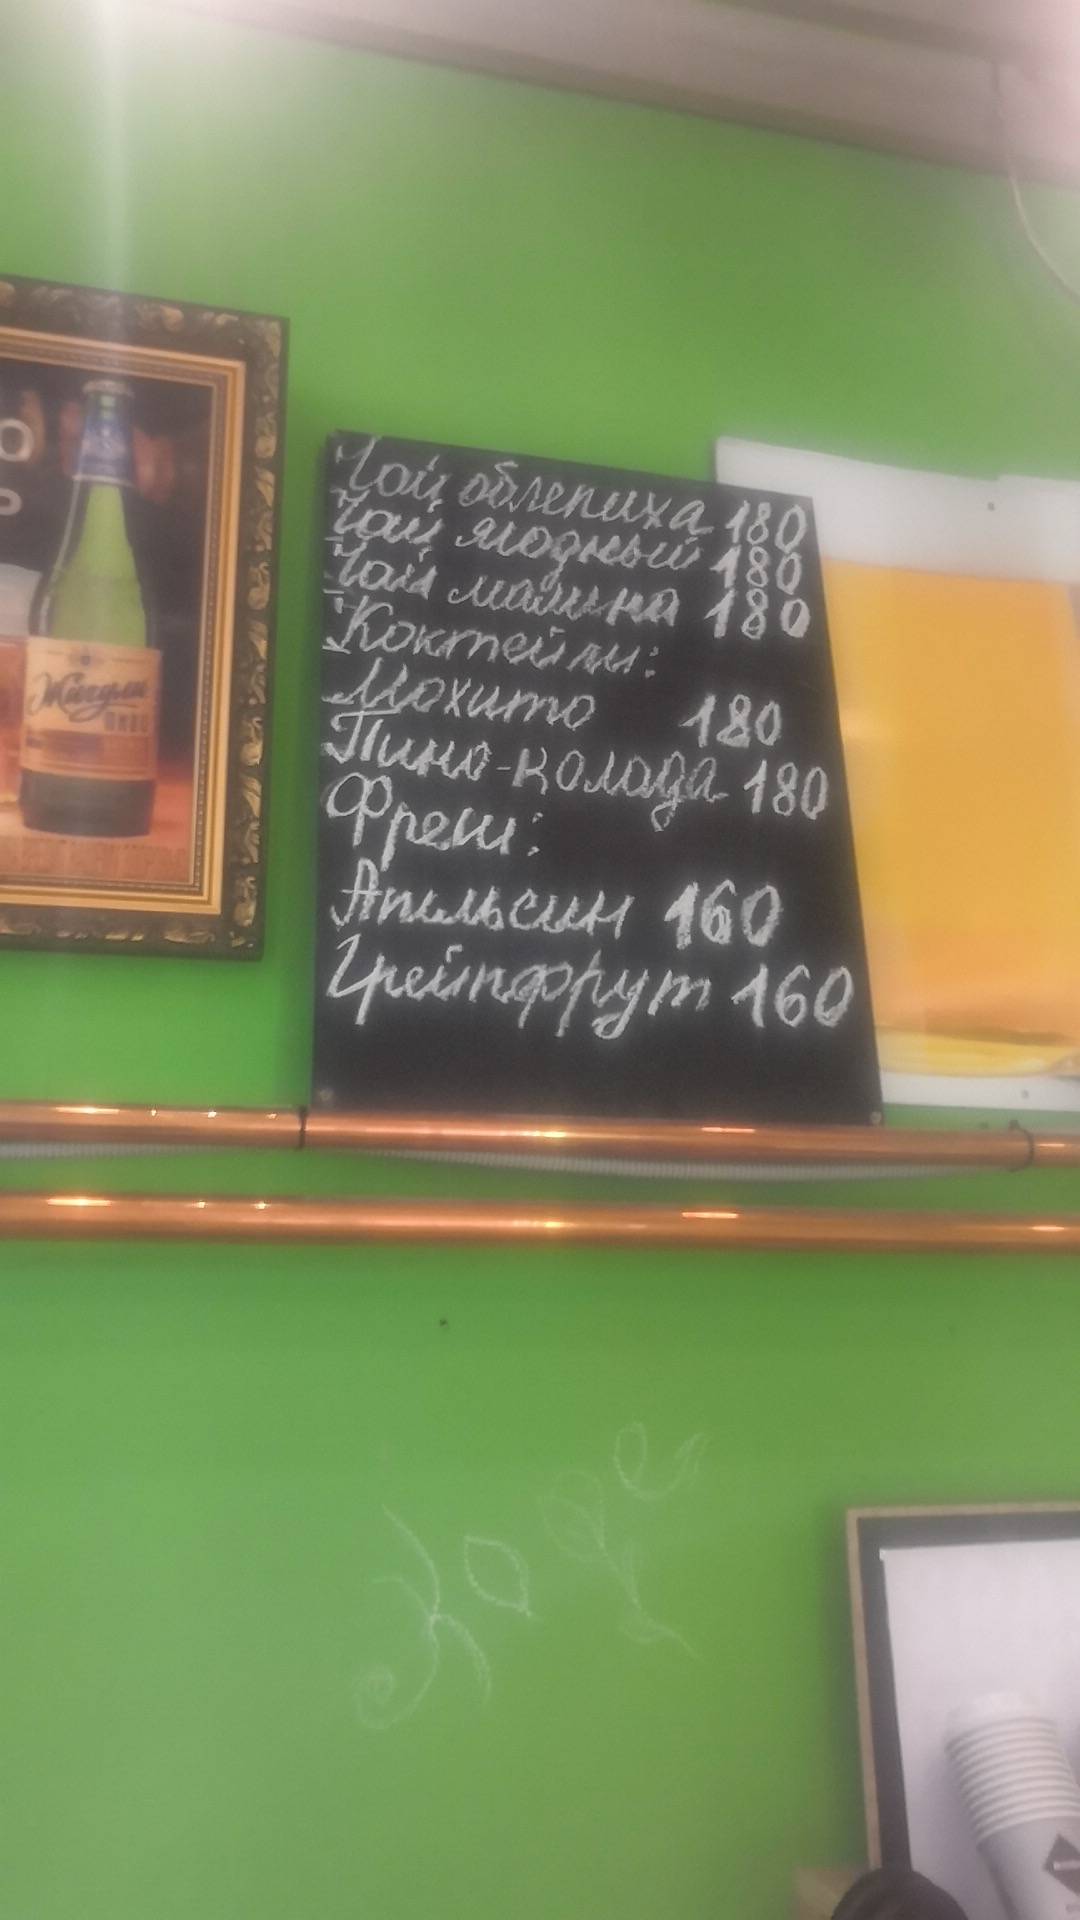 Чай облепиха 180
Чай ягодный 180
Чай малина 180
Коктейли:
Мохито 180
Пино-колада 180
Фреш:
Апильсин 160
Грейпфрут 160
Жигули
ПИВО
О
Р
кофе